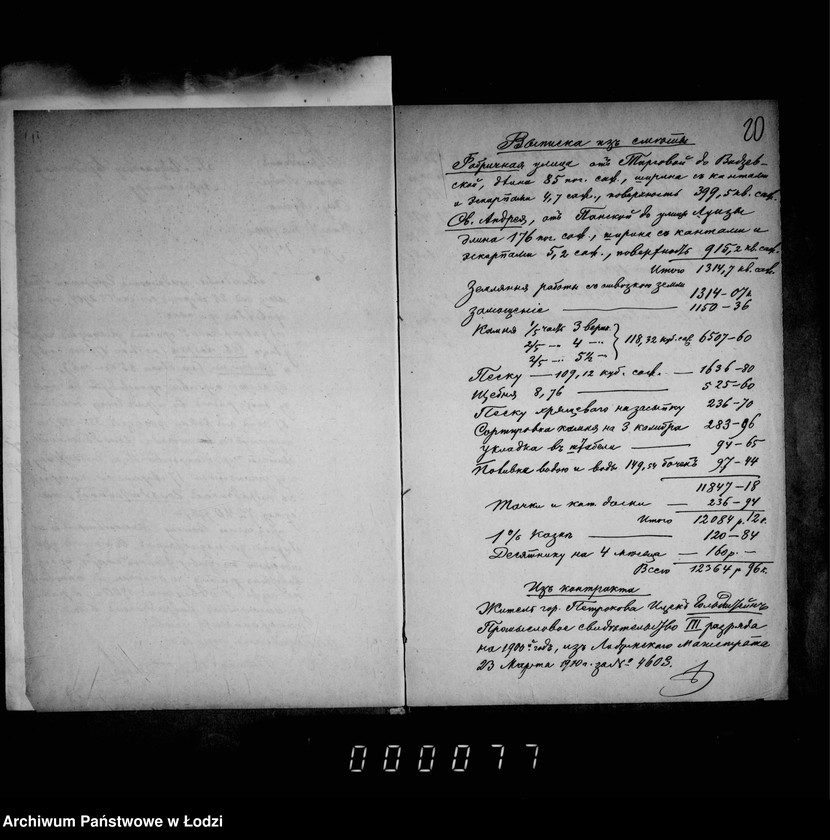 20
Выписка изъ сметы
Фабричная улица отъ Торговой до Видзев-
ской, длина 85 пог. саж., ширина съ кантами
и эскарпами 4,7 саж., поверхность 399,5 кв. саж.
Св. Андрея, отъ Панской до улицы Луизы
длина 176 пог. саж., ширина съ кантами и
эскарпами 5,2 саж., поверхность 915,2 кв. саж.
Итого 1314,7 кв. саж.
Земляныя работы съ вывозкою земли 1314-07к
Замощеніе 1150-36
Камня 1/5 часть 3 верш.
2/5 -"- 4 -"- } 118,32 куб. саж 6507-60
2/5 -"- 5½ -
Песку 109,12 куб. саж. 1636-80
Щебня 8,76 525-60
Песку хрящеваго на засыпку 236-70
Сортировка камня на 3 калибра 283-96
укладка въ штабели 94-65
Поливка водою и воды 149,54 бочекъ 97-44
11847-18
Тачки и кат. доски 236-94
Итого 12084 р. 12 к.
1% казны 120-84
Десятнику на 4 месяца 160 р. -
Всего 12364 р 96 к.
Изъ контракта
Житель гор. Петрокова Ицекъ
Промысловое свидетельство III разряда
на 1900й годъ, изъ Магистрата
23 Марта 1900 г. за № 4603.
0000077
Archiwum Państwowe w Łodzi